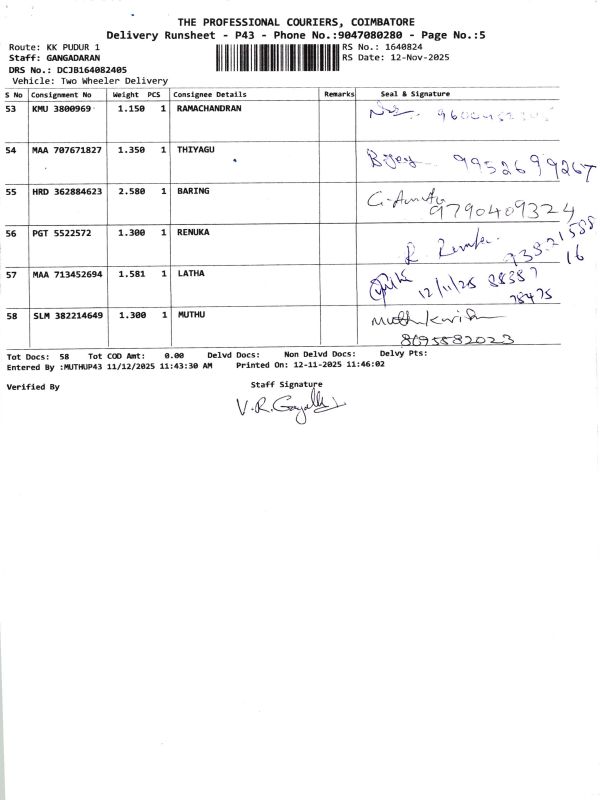 THE PROFESSIONAL COURIERS, COIMBATORE
Delivery Runsheet - P43 - Phone No.:9047080280 - Page No.:5
Route: KK PUDUR 1 RS No.: 1640824
Staff: GANGADARAN RS Date: 12-Nov-2025
DRS No.: DCJB164082405
Vehicle: Two Wheeler Delivery
S No Consignment No Weight PCS Consignee Details Remarks Seal & Signature
53 KMU 3800969 1.150 1 RAMACHANDRAN
54 MAA 707671827 1.350 1 THIYAGU 9952699267
55 HRD 362884623 2.580 1 BARING G. Amutha
9790409324
56 PGT 5522572 1.300 1 RENUKA R. Renuka
57 MAA 713452694 1.581 1 LATHA 12/11/25 88387
78475
58 SLM 382214649 1.300 1 MUTHU
8695582023
Tot Docs: 58 Tot COD Amt: 0.00 Delvd Docs: Non Delvd Docs: Delvy Pts:
Entered By :MUTHUP43 11/12/2025 11:43:30 AM Printed On: 12-11-2025 11:46:02
Verified By Staff Signature